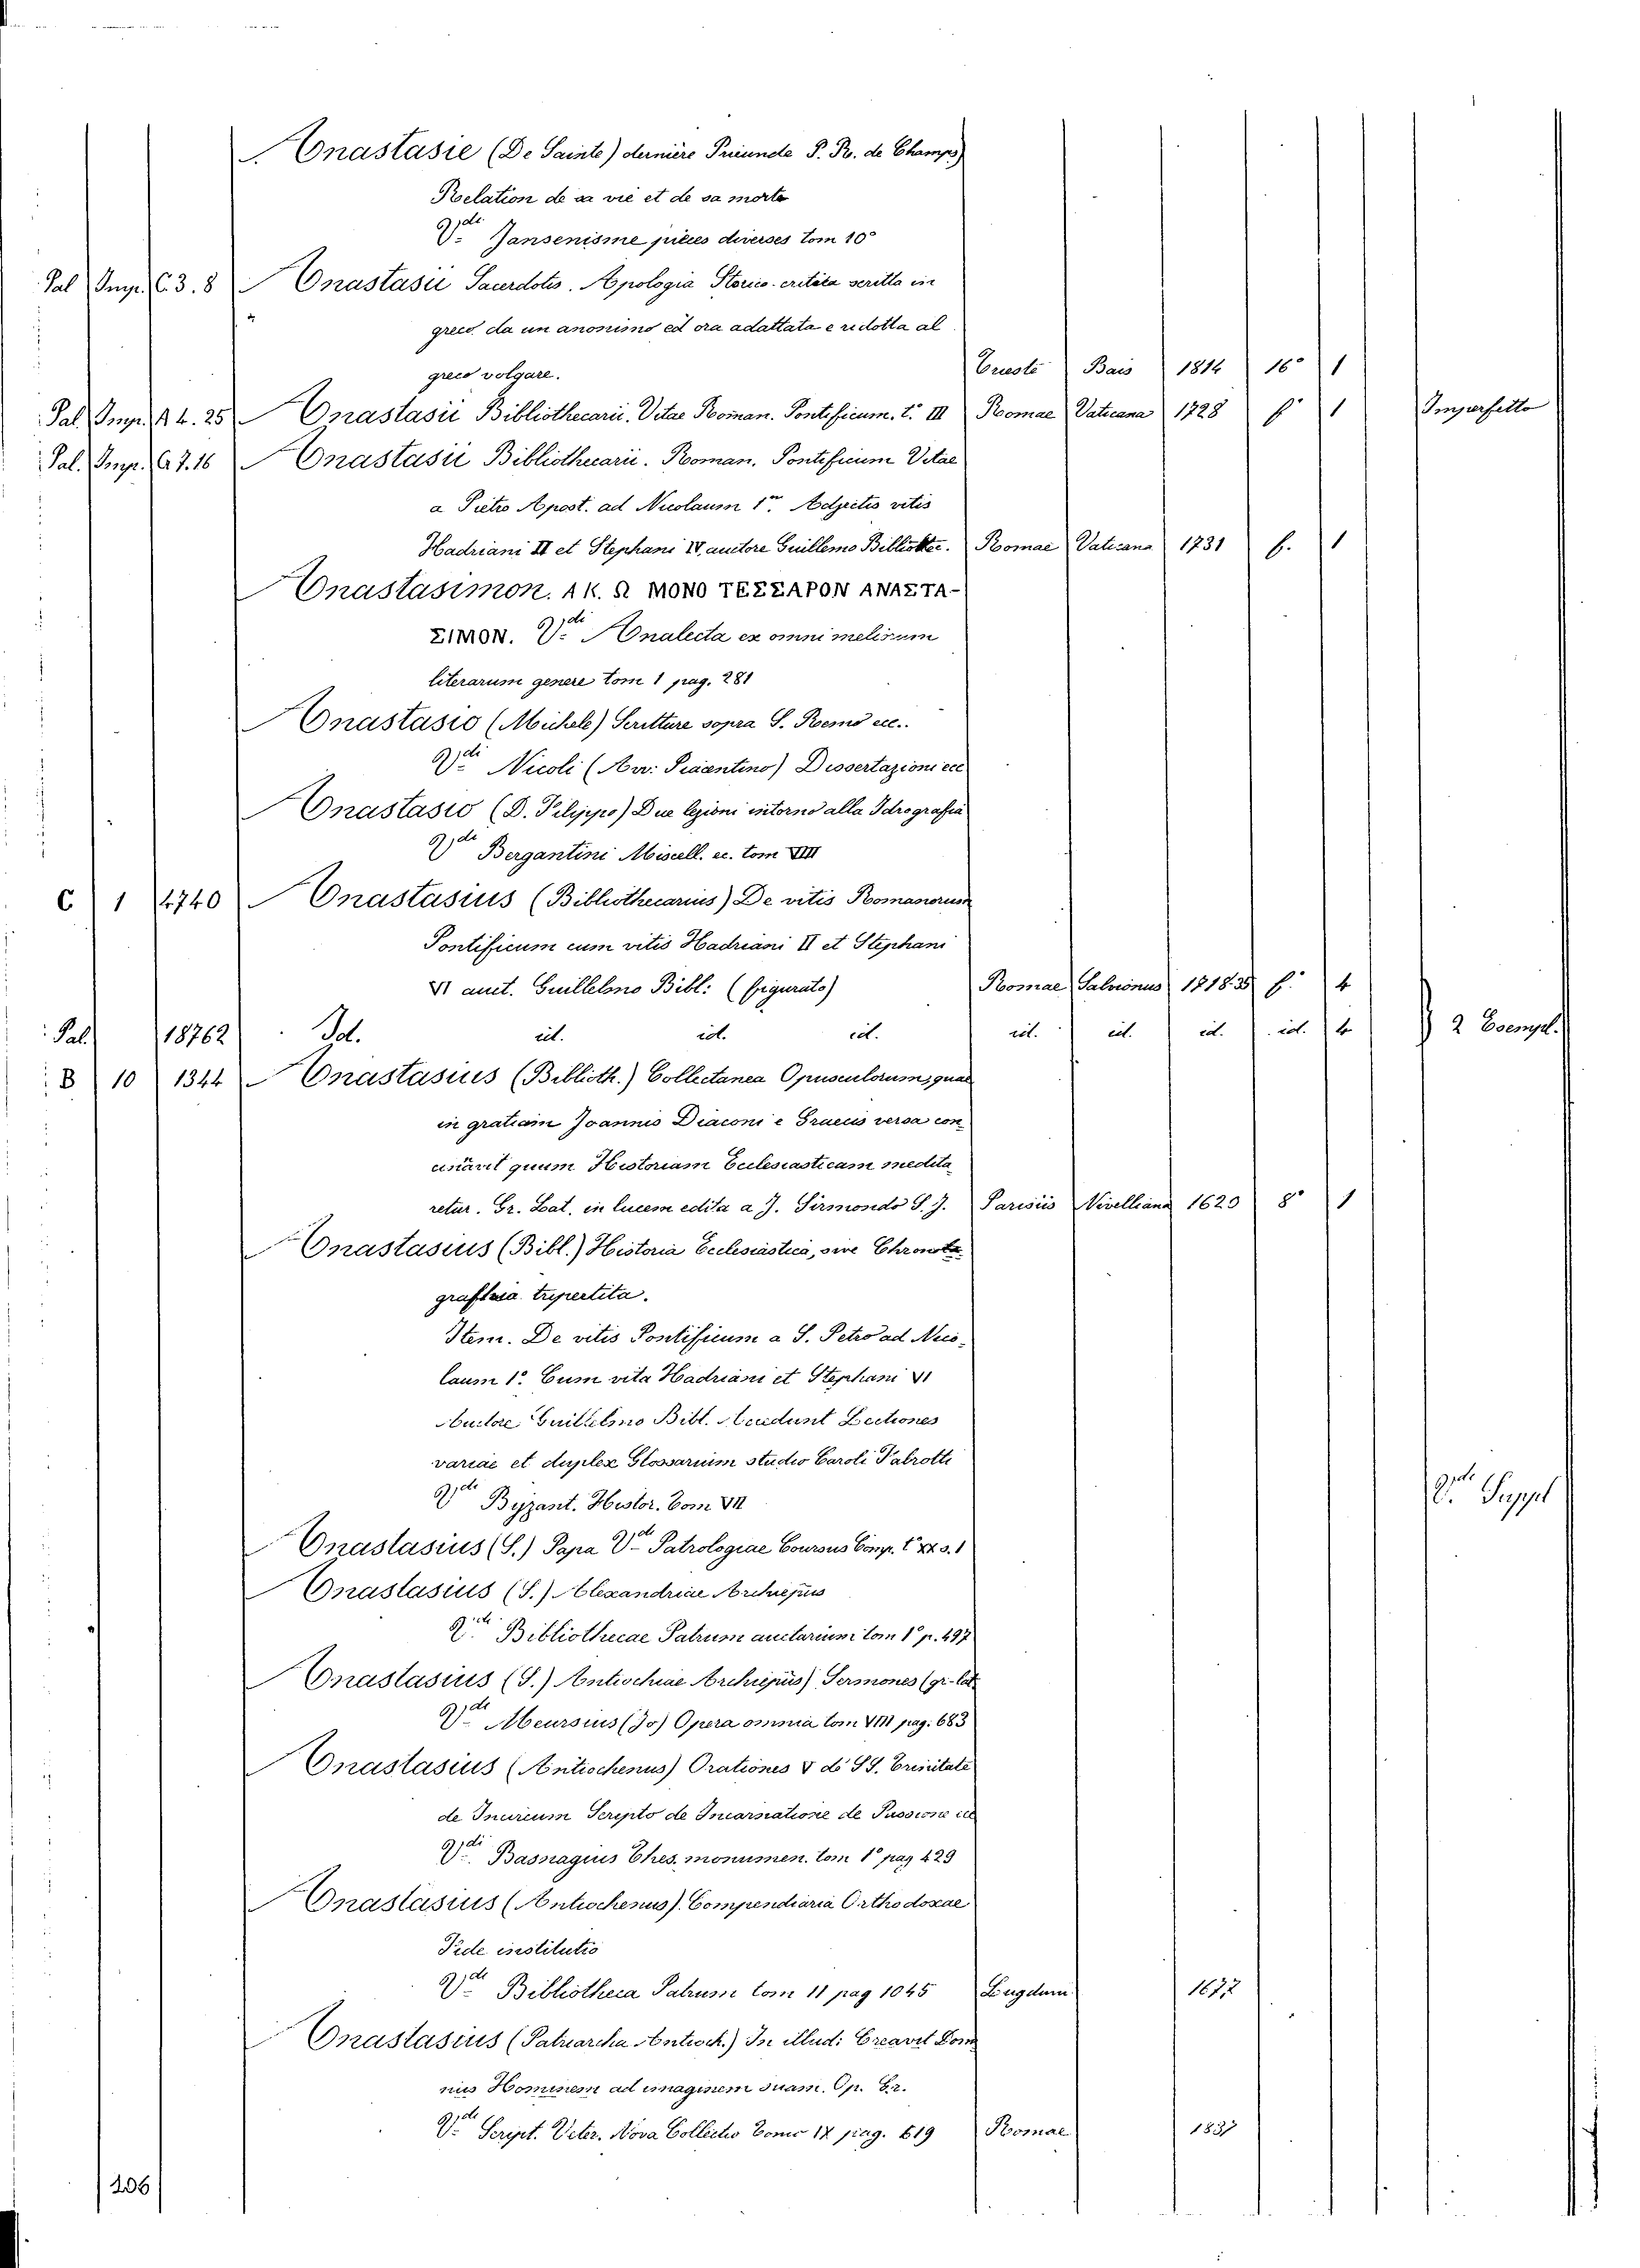 Anastasie (De Sainte) dernière Prieunde P. R. de Champs)
Relation de sa vie et de sa morte
V.de Jansenisme pièces diverses tom 10°
Pal Imp. C 3. 8 Anastasii Sacerdotis. Apologia Storico-critica scritta in
greco da un anonimo ed ora adattata e ridotta al
greco volgare. Trieste Bais 1814 16° 1
Pal. Imp. A 4. 25 Anastasii Bibliothecarii. Vitae Roman. Pontificum. t. III Romae Vaticana 1728 f° 1 Imperfetto
Pal. Imp. G 7. 16 Anastasii Bibliothecarii. Roman. Pontificum Vitae
a Pietro Apost. ad Nicolaum 1m. Adjectis vitis
Hadriani II et Stephani IV, auctore Guillemo Bibliothec. Romae Vaticana 1731 f. 1
Anastasimon. ΜΟΝΟ ΤΕΣΣΑΡΟΝ ΑΝΑΣΤΑ-
ΣΙΜΟΝ. V.di Analecta ex omni meliorum
literarum genere tom 1 pag. 281
Anastasio (Michele) Scritture sopra S. Remo ecc.
V.di Nicoli (Avv: Piacentino) Dissertazioni ecc
Anastasio (D. Filippo) Due lezioni intorno alla Idrografia
V.di Bergantini Miscell. ec. tom VIII
C 1 4740 Anastasius (Bibliothecarius) De vitis Romanorum
Pontificum cum vitis Hadriani II et Stephani
VI auct. Guillelmo Bibl: (figurato) Romae Salvionus 1718.35 f. 4
Pal 18762 Id. id. id. id. id. id. id. id. 4 2 Esempl.
B 10 1344 Anastasius (Biblioth.) Collectanea Opusculorum, quae
in gratiam Joannis Diaconi e Graecis versa con
cinavit quum Historiam Ecclesiasticam medita
retur. Gr. Lat. in lucem edita a J. Sirmondo S. J. Parisiis Nivelliana 1620 8° 1
Anastasius (Bibl.) Historia Ecclesiastica, sive Chronota
grafhia tripertita.
Item. De vitis Pontificum a S. Petro ad Nico-
laum 1°. Cum vita Hadriani et Stephani VI
Auctore Guillelmo Bibl. Accedunt Lectiones
variae et duplex Glossarium studio Caroli Fabrotti
V.di Byzant. Histor. Tom VII V.di Suppl
Anastasius (S.) Papa V.di Patrologiae Coursus Comp. t. XX s. 1
Anastasius (S.) Alexandriae Archiepus
V.di Bibliothecae Patrum auctarium tom 1° p. 497
Anastasius (S.) Antiochiae Archiepus) Sermones (gr-lat
V.di Meursius (Jo) Opera omnia tom VIII pag. 683
Anastasius (Antiochenus) Orationes V de SS. Trinitate
de Incircum Scripto de Incarnatione de Passione
V.di Basnagius Thes. monumen. tom 1° pag 429
Anastasius (Antiochenus). Compendiaria Orthodoxae
Fide institutio
V.di Bibliotheca Patrum tom 11 pag 1045 Lugduni 1677
Anastasius (Patriarcha Antioch.) In illud: Creavit Dom
nus Hominem ad imaginem suam. Op. Gr.
V.di Script. Veter. Nova Collectio Tomo IX pag. 619 Romae 1837
206